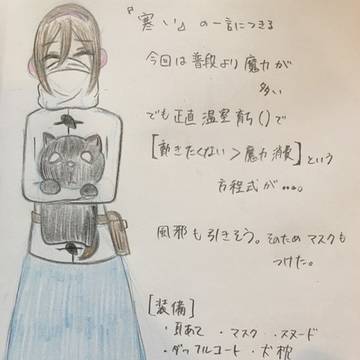 『寒い』の一言につきる
今回は普段より魔力が
多い
でも正直温室育ち()で
[動きたくない>魔力消費]という
方程式が……。
風邪も引きそう。そのためマスクも
つけた。
[装備]
・耳あて ・マスク ・スヌード
・ダッフルコート ・犬枕